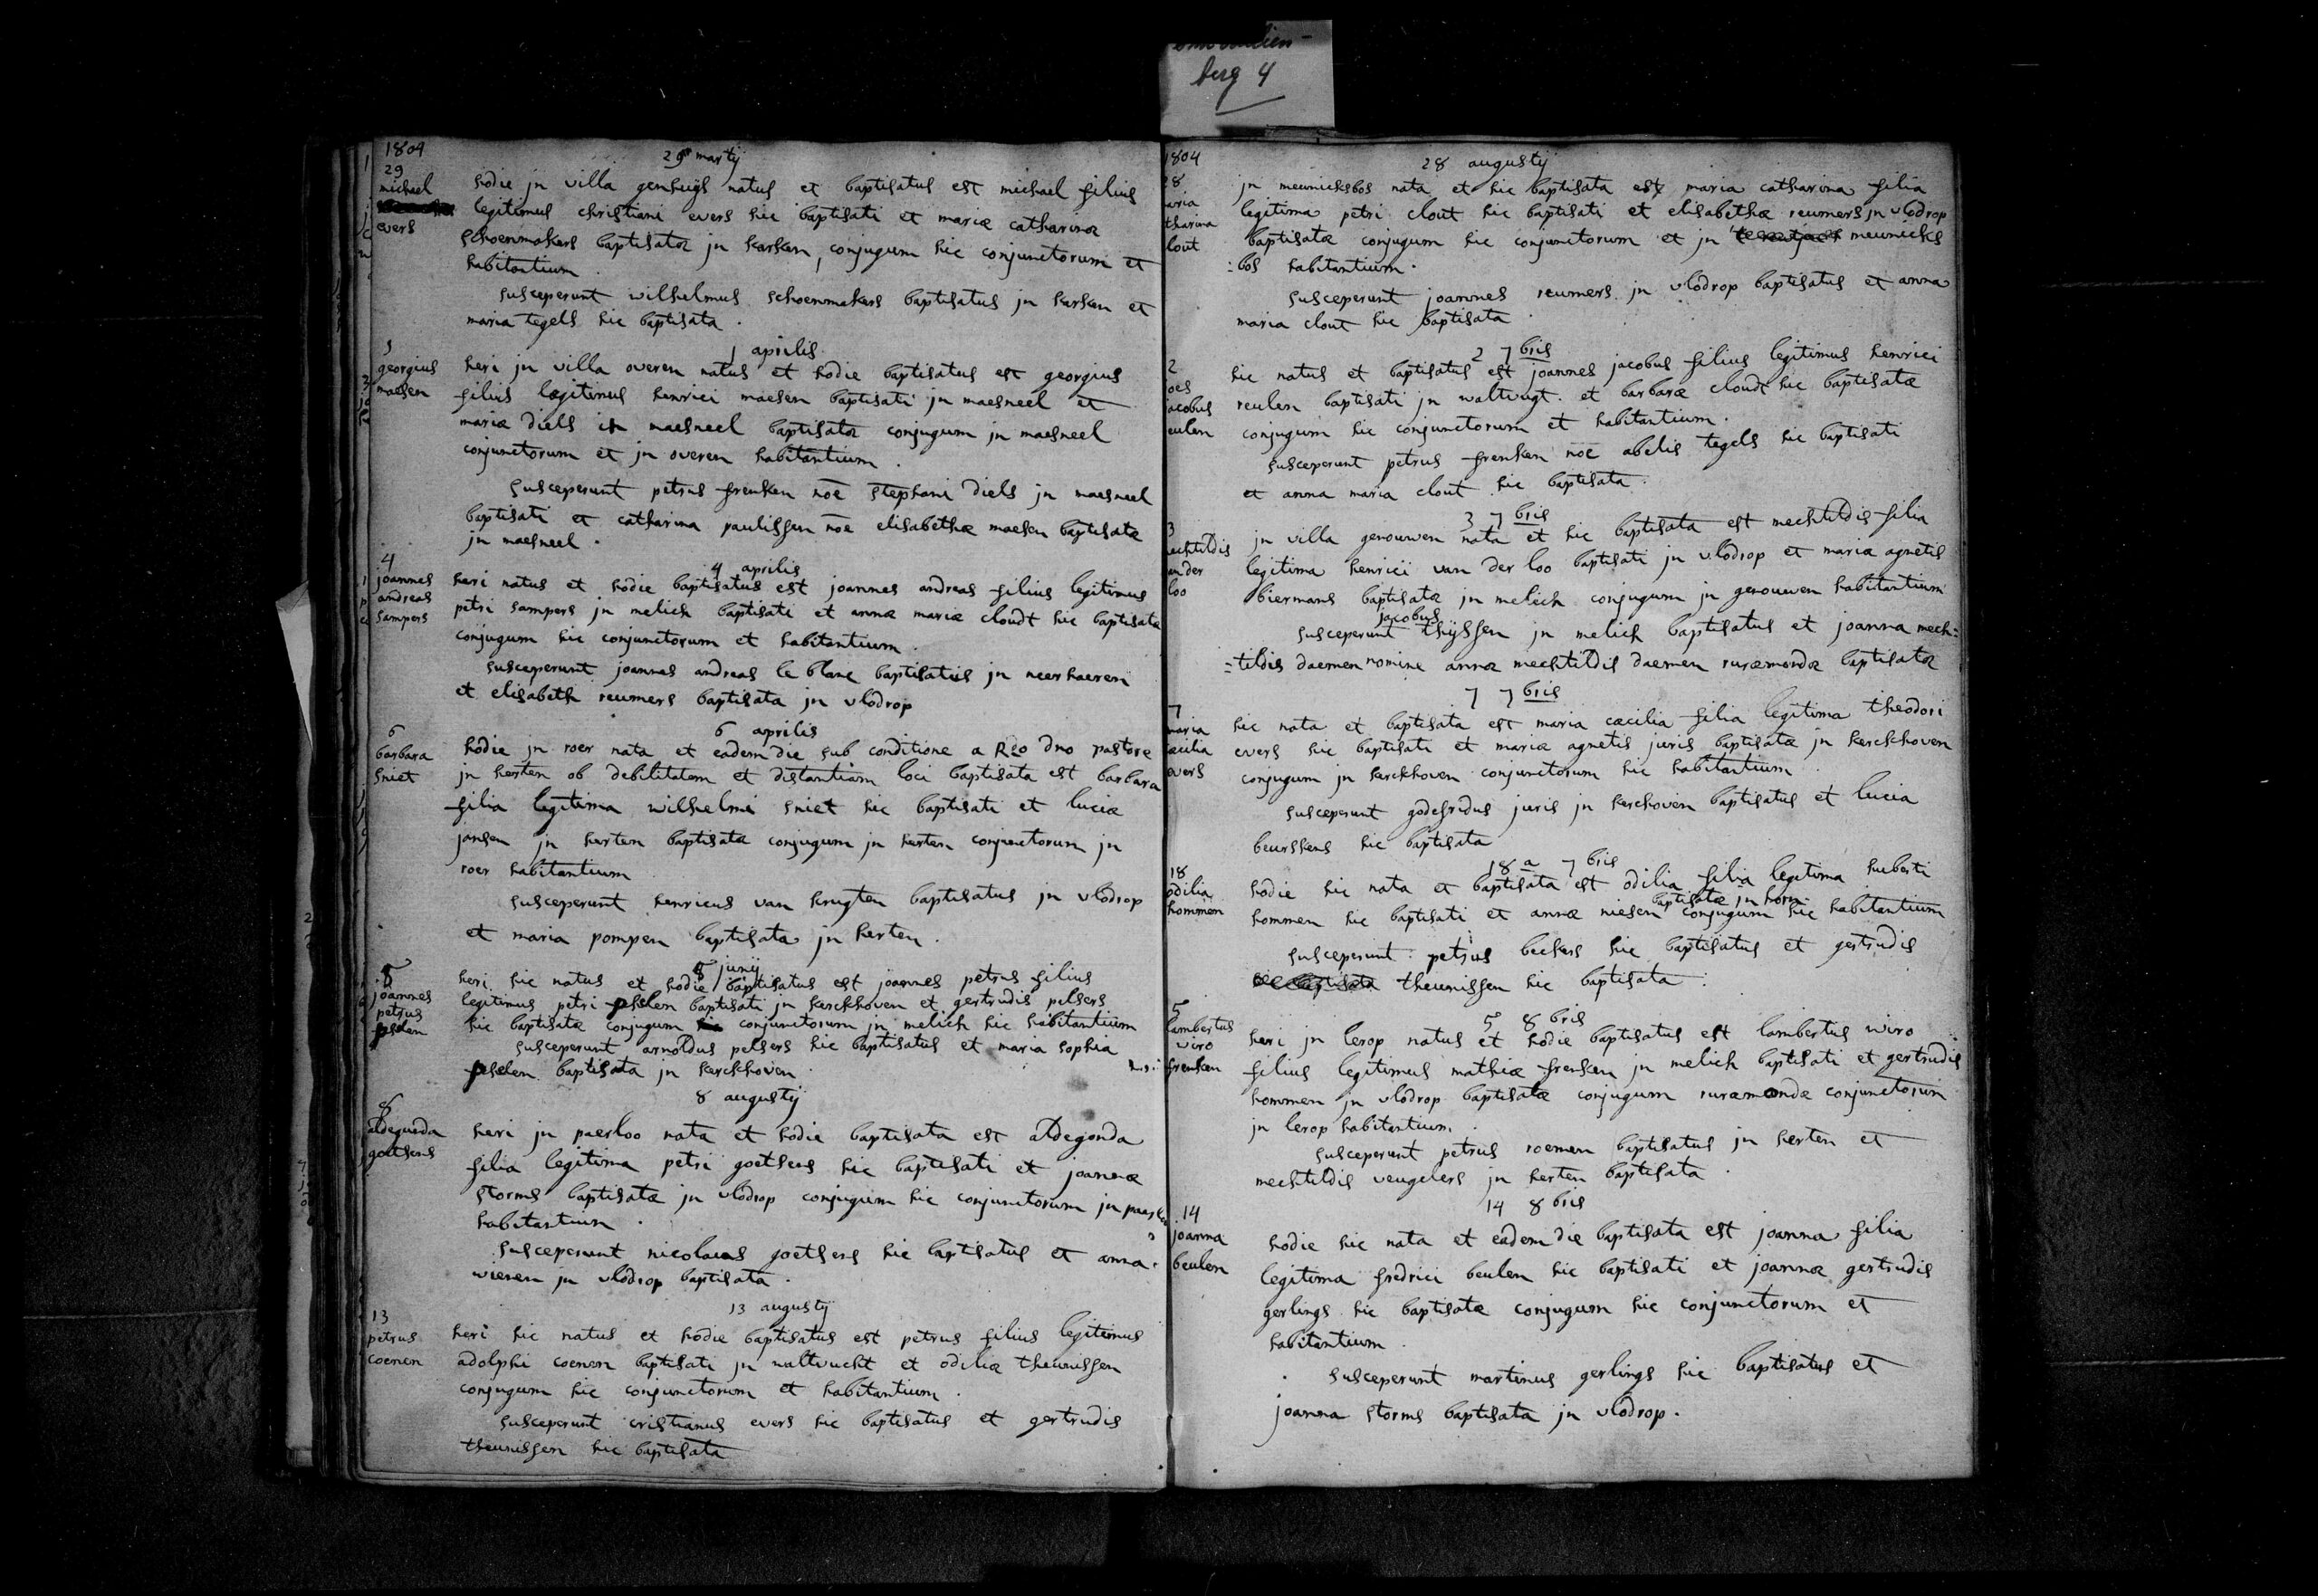 berg 4
1804
29 martij
29
michael
evers
hodie jn villa genhuijs natus et baptisatus est michael filius
legitimus christiani evers hic baptisati et mariæ catharinæ
schoenmakers baptisatæ jn karken, conjugum hic conjunctorum et
habitantium.
susceperunt wilhelmus schoenmakers baptisatus jn karken et
maria tegels hic baptisata.
1 aprilis
georgius
maesen
heri jn villa overen natus et hodie baptisatus est georgius
filius legitimus henrici maesen baptisati jn maesneel et
mariæ diels in maesneel baptisatæ conjugum jn maesneel
conjunctorum et jn overen habitantium.
susceperunt petrus frenken noē stephani diels jn maesneel
baptisati et catharina paulissen noē elisabethæ maesen baptisatæ
jn maesneel.
4 aprilis
4
joannes
andreas
sampers
heri natus et hodie baptisatus est joannes andreas filius legitimus
petri sampers jn melick baptisati et annæ mariæ cloudt hic baptisatæ
conjugum hic conjunctorum et habitantium.
susceperunt joannes andreas le blanc baptisatus jn neerhaeren
et elisabeth reumers baptisata jn vlodrop
6 aprilis
6
barbara
sniet
hodie jn roer nata et eadem die sub conditione a Rdo dno pastore
jn herten ob debilitatem et distantiam loci baptisata est barbara
filia legitima wilhelmi sniet hic baptisati et luciæ
jansen jn herten baptisatæ conjugum jn herten conjunctorum jn
roer habitantium
susceperunt henricus van krugten baptisatus jn vlodrop
et maria pompen baptisata jn herten.
8 junij
joannes
petrus
pselen
heri hic natus et hodie baptisatus est joannes petrus filius
legitimus petri pselen baptisati jn kerckhoven et gertrudis pelsers
hic baptisatæ conjugum conjunctorum jn melick hic habitantium
susceperunt arnoldus pelsers hic baptisatus et maria sophia
pselen baptisata jn kerckhoven.
8 augustij
8
aldegunda
goetsens
heri jn paerloo nata et hodie baptisata est aldegonda
filia legitima petri goetsens hic baptisati et joannæ
storms baptisatæ jn vlodrop conjugum hic conjunctorum jn paerloo
habitantium.
susceperunt nicolaus goetsens hic baptisatus et anna
wienen jn vlodrop baptisata.
13 augustij
13
petrus
coenen
heri hic natus et hodie baptisatus est petrus filius legitimus
adolphi coenen baptisati jn waltvucht et odiliæ theunissen
conjugum hic conjunctorum et habitantium.
susceperunt cristianus evers hic baptisatus et gertrudis
theunissen hic baptisata
1804
28 augustij
28
aria
tharina
lout
jn meunicksbos nata et hic baptisata est maria catharina filia
legitima petri clout hic baptisati et elisabethæ reumers jn vlodrop
baptisatæ conjugum hic conjunctorum et jn meunicks
=bos habitantium.
susceperunt joannes reumers jn vlodrop baptisatus et anna
maria clout hic baptisata.
2 7bris
2
oes
jacobus
eulen
hic natus et baptisatus est joannes jacobus filius legitimus henrici
reulen baptisati jn waltvugt. et barbaræ cloudt hic baptisatæ
conjugum hic conjunctorum et habitantium.
susceperunt petrus frenken noē abelis tegels hic baptisati
et anna maria clout hic baptisata.
3 7bris
3
echtildis
ander
loo
jn villa genouwen nata et hic baptisata est mechtildis filia
legitima henrici van der loo baptisati jn vlodrop et mariæ agnetis
biermans baptisatæ jn melick conjugum jn genouwen habitantium
jacobus
susceperunt thijssen jn melick baptisatus et joanna mech=
=tildis daemen nomine annæ mechtildis daemen ruræmondæ baptisatæ
7 7bris
7
maria
cæcilia
evers
hic nata et baptisata est maria cæcilia filia legitima theodori
evers hic baptisati et mariæ agnetis juris baptisatæ jn kerckhoven
conjugum jn kerckhoven conjunctorum hic habitantium
susceperunt godefridus juris jn kerchoven baptisatus et lucia
beurskens hic baptisata
18a 7bris
18
odilia
hommen
hodie hic nata et baptisata est odilia filia legitima huberti
baptisatæ jn horn
hommen hic baptisati et annæ niesen conjugum hic habitantium
susceperunt petrus beckers hic baptisatus et gertrudis
theunissen hic baptisata.
5 8bris
5
lambertus
wiro
frenken
heri jn lerop natus et hodie baptisatus est lambertus wiro
filius legitimus mathiæ frenken jn melick baptisati et gertrudis
hommen jn vlodrop baptisatæ conjugum ruræmondæ conjunctorum
jn lerop habitantium.
susceperunt petrus roemen baptisatus jn herten et
mechtildis veugelers jn herten baptisata.
14 8bris
14
joanna
beulen
hodie hic nata et eadem die baptisata est joanna filia
legitima fredrici beulen hic baptisati et joannæ gertrudis
gerlings hic baptisatæ conjugum hic conjunctorum et
habitantium.
susceperunt martinus gerlings hic baptisatus et
joanna storms baptisata jn vlodrop.